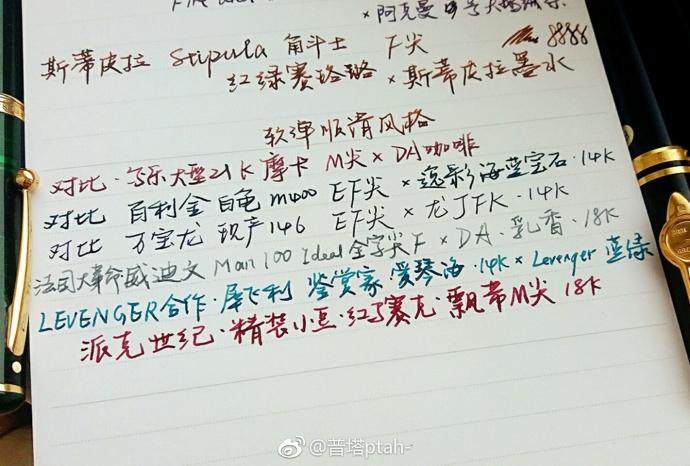 ×阿克曼
斯蒂皮拉 Stipula 角斗士 F尖
红绿赛璐璐 × 斯蒂皮拉墨水
软弹顺滑风格
对比·写乐大型21K 摩卡 M尖 × DA咖啡
对比 百利金 白龟 m400 EF尖 × 逸彩海蓝宝石·14K
对比 万宝龙 现产146 EF尖 × 龙JFK·14K
法国大革命威迪文 Man 100 Ideal 全字尖 F × DA·乳香·18K
LEVENGER合作·犀飞利 鉴赏家 爱琴海·14K × Levenger 蓝绿
派克世纪·精装小豆·红赛克·飘带M尖 18K
@普塔ptah-